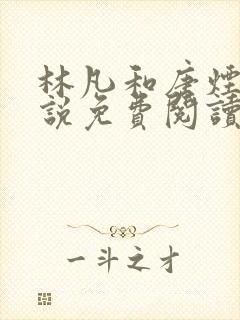 林凡和唐煙
說免費閱讀
一斗之才